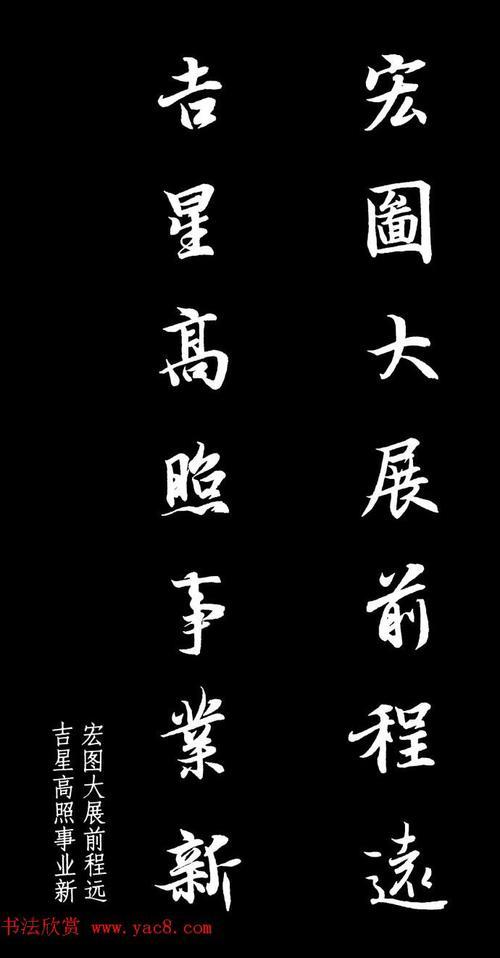 宏圖大展前程遠
吉星高照事業新
宏图大展前程远
吉星高照事业新
书法欣赏 www.yac8.com